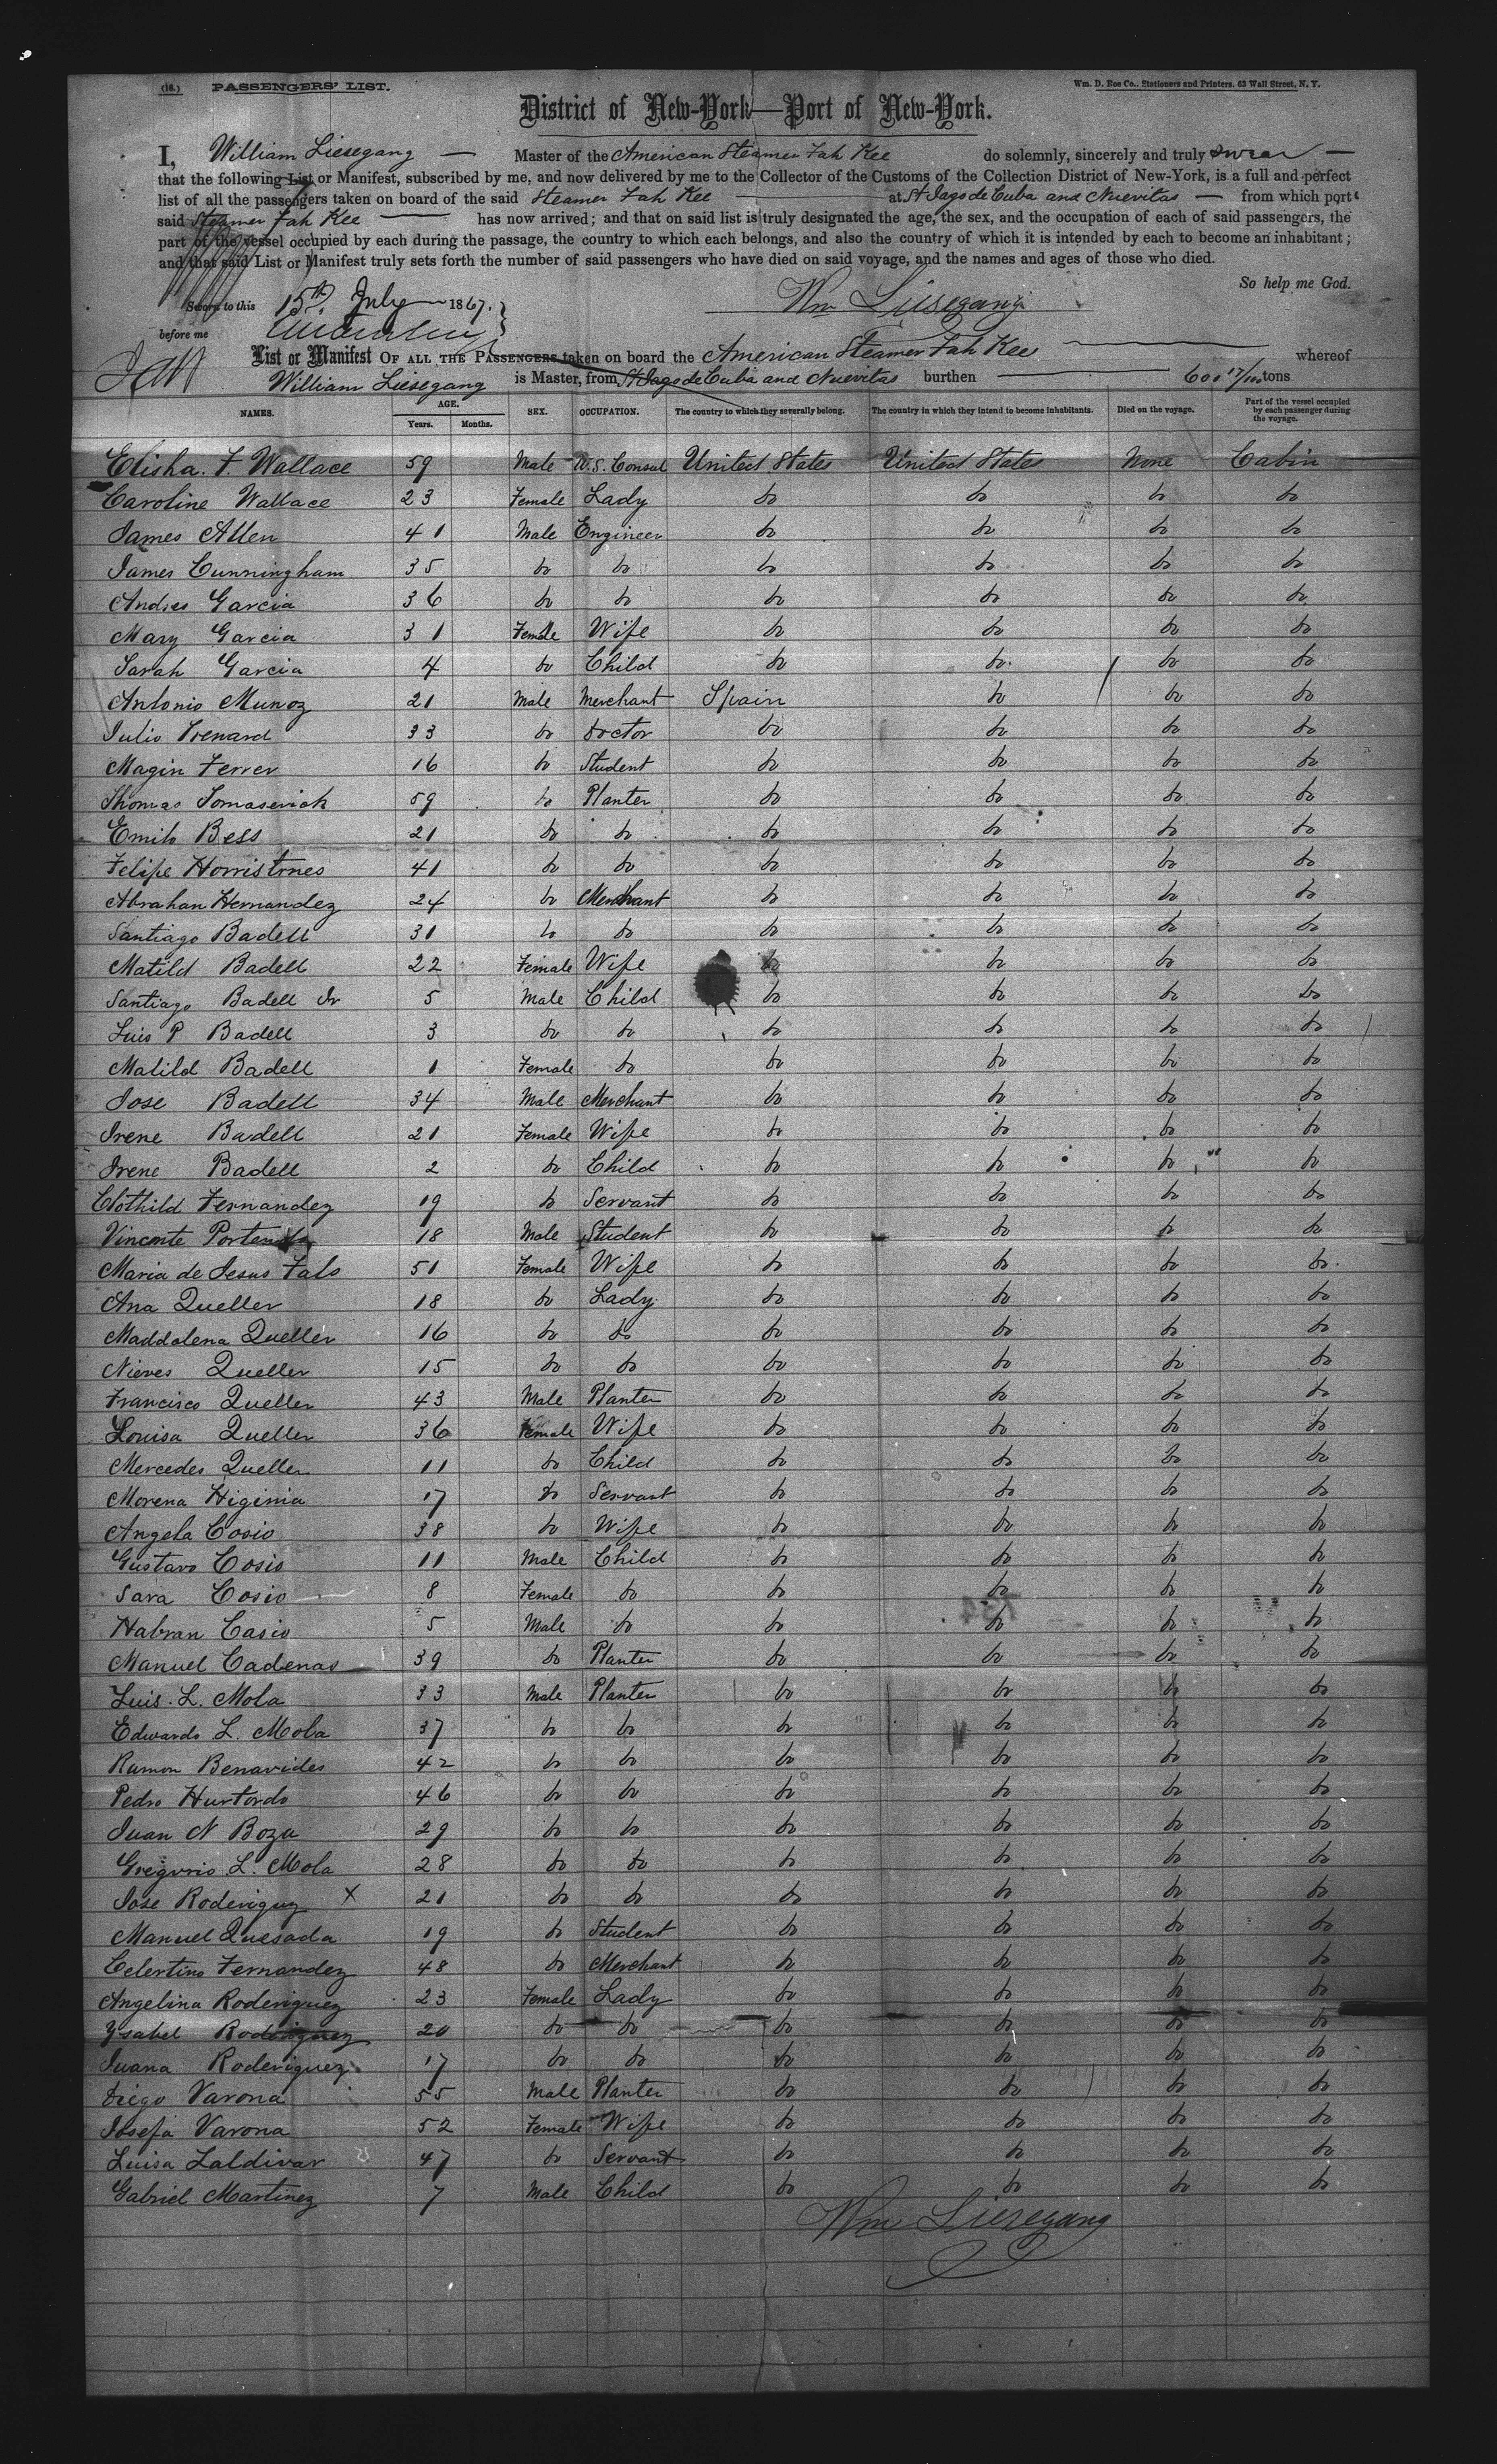 (18.) PASSENGERS' LIST. Wm. D. Roe Co., Stationers and Printers. 63 Wall Street, N. Y.
District of New-York—Port of New-York.
I, William Liesegang — Master of the American Steamer Fah Kee do solemnly, sincerely and truly swear —
that the following List or Manifest, subscribed by me, and now delivered by me to the Collector of the Customs of the Collection District of New-York, is a full and perfect
list of all the passengers taken on board of the said Steamer Fah Kee — at St Jago de Cuba and Nuevitas — from which port
said Steamer Fah Kee — has now arrived; and that on said list is truly designated the age, the sex, and the occupation of each of said passengers, the
part of the vessel occupied by each during the passage, the country to which each belongs, and also the country of which it is intended by each to become an inhabitant;
and that said List or Manifest truly sets forth the number of said passengers who have died on said voyage, and the names and ages of those who died.
So help me God.
Sworn to this 15th July 1867. Wm Liesegang
before me
List or Manifest OF ALL THE PASSENGERS taken on board the American Steamer Fah Kee — whereof
William Liesegang is Master, from St Jago de Cuba and Nuevitas burthen — 600 17/100 tons
NAMES. AGE. Years. Months. SEX. OCCUPATION. The country to which they severally belong. The country in which they intend to become inhabitants. Died on the voyage. Part of the vessel occupied by each passenger during the voyage.
Elisha. F. Wallace 59 Male U.S. Consul United States United States None Cabin
Caroline Wallace 23 Female Lady do do do do
James Allen 41 Male Engineer do do do do
James Cunningham 35 do do do do do do
Andres Garcia 36 do do do do do do
Mary Garcia 31 Female Wife do do do do
Sarah Garcia 4 do Child do do do do
Antonio Munoz 21 Male Merchant Spain do do do
Julio 33 do Doctor do do do do
Magin Ferrer 16 do Student do do do do
Thomas Tomaserich 59 do Planter do do do do
Emilo Bess 21 do do do do do do
Felipe 41 do do do do do do
Abrahan Hernandez 24 do Merchant do do do do
Santiago Badell 31 do do do do do do
Matild Badell 22 Female Wife do do do do
Santiago Badell Jr 5 Male Child do do do do
Luis P Badell 3 do do do do do do
Matild Badell 1 Female do do do do do
Jose Badell 34 Male Merchant do do do do
Irene Badell 21 Female Wife do do do do
Irene Badell 2 do Child do do do do
Clothild Fernandez 19 do Servant do do do do
Vincente 18 Male Student do do do do
Maria de Jesus Fals 51 Female Wife do do do do
Ana Queller 18 do Lady do do do do
Maddalena Queller 16 do do do do do do
Nieves Queller 15 do do do do do do
Francisco Queller 43 Male Planter do do do do
Louisa Queller 36 Female Wife do do do do
Mercedes Queller 11 do Child do do do do
Morena Higinia 17 do Servant do do do do
Angela Cosio 38 do Wife do do do do
Gustavo Cosio 11 Male Child do do do do
Sara Cosio 8 Female do do do do do
Habran Casio 5 Male do do do do do
Manuel Cadenas 39 do Planter do do do do
Luis. L. Mola 33 Male Planter do do do do
Edwardo L. Mola 37 do do do do do do
Ramon Benavides 42 do do do do do do
Pedro Hurtordo 46 do do do do do do
Juan N Boza 29 do do do do do do
Gregorio L. Mola 28 do do do do do do
Jose Roderiguz X 21 do do do do do do
Manuel Quesada 19 do Student do do do do
Celertino Fernandez 48 do Merchant do do do do
Angelina Roderiguez 23 Female Lady do do do do
Ysabel Roderiguez 20 do do do do do do
Juana Roderiguez 17 do do do do do do
Diego Varona 55 Male Planter do do do do
Josefa Varona 52 Female Wife do do do do
Luisa Zaldivar 47 do Servant do do do do
Gabriel Martinez 7 Male Child do do do do
Wm Liesegang